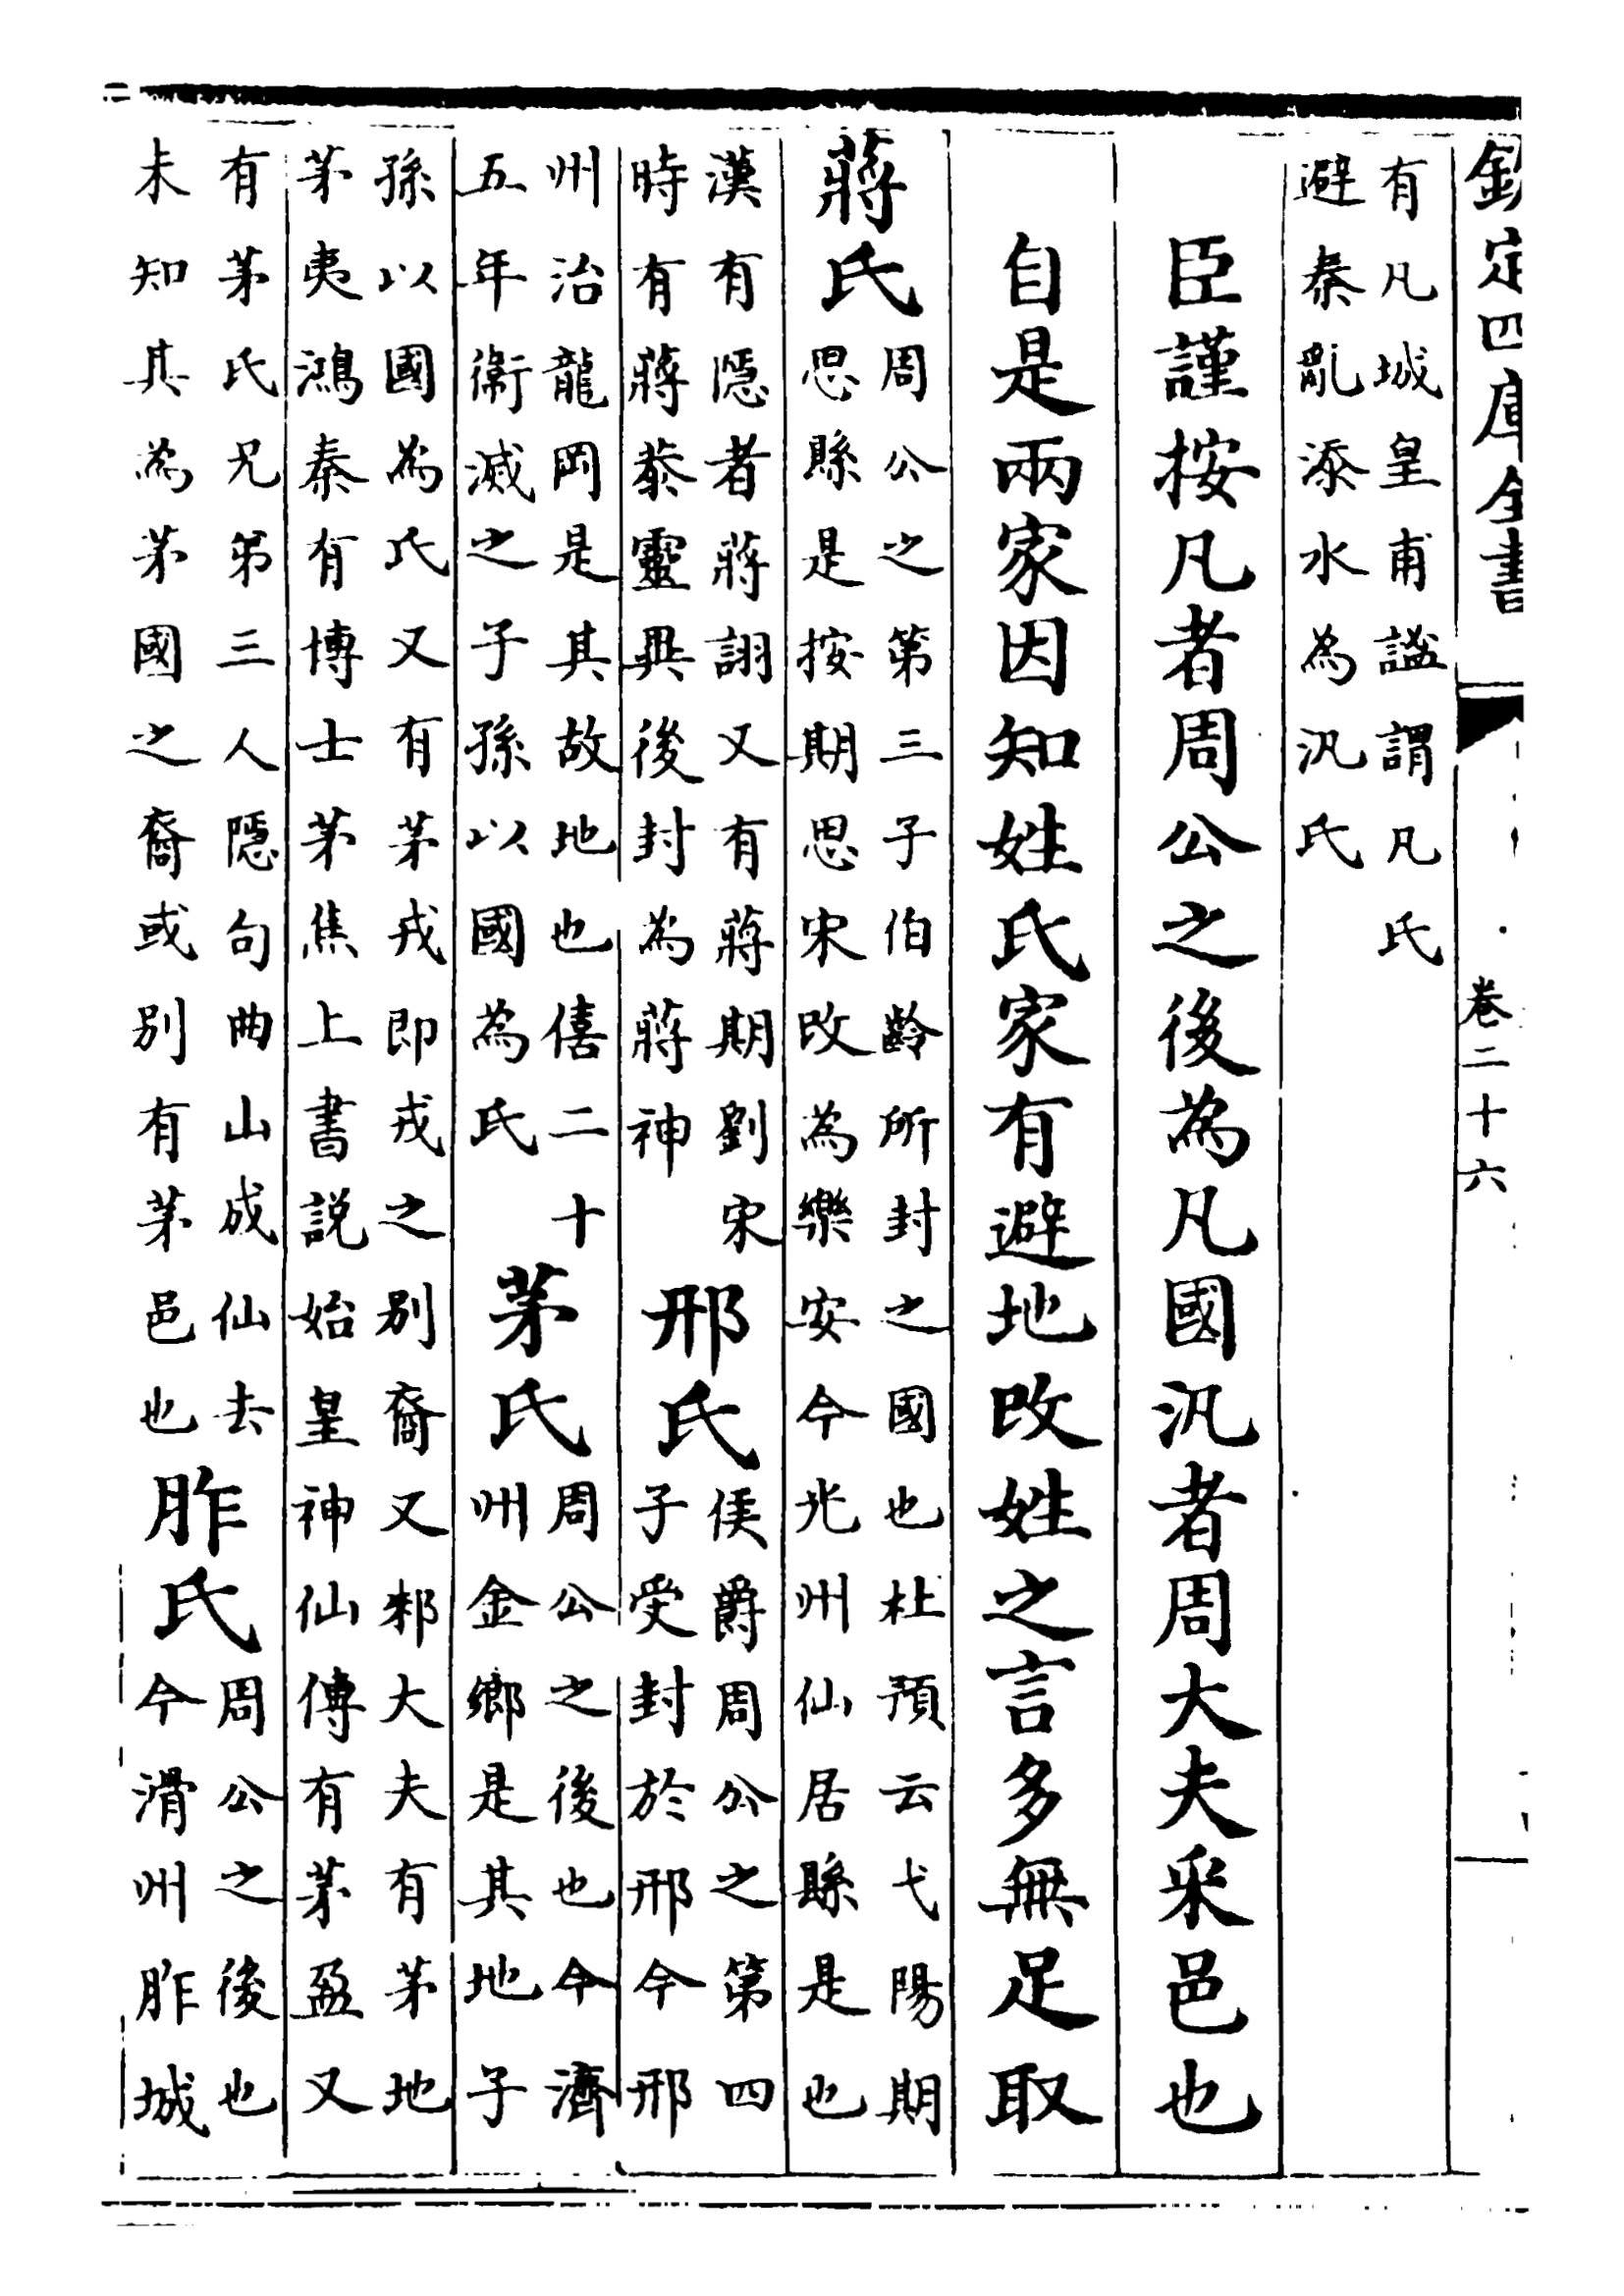 欽定四庫全書 卷二十六
有凡城皇甫謐謂凡氏
避秦亂添水為汎氏
臣謹按凡者周公之後為凡國汎者周大夫采邑也
自是兩家因知姓氏家有避地改姓之言多無足取
蔣氏
周公之第三子伯齡所封之國也杜預云弋陽期
思縣是按期思宋改為樂安今光州仙居縣是也
漢有隱者蔣詡又有蔣期劉宋
時有蔣恭靈異後封為蔣蔣神
邢氏
侯爵周公之第四
子受封於邢今邢
州治龍岡是其故地也僖二十
五年衛滅之子孫以國為氏
茅氏
周公之後也今濟
州金鄉是其地子
孫以國為氏又有茅戎即戎之別裔又邾大夫有茅地
茅夷鴻秦有博士茅焦上書説始皇神仙傳有茅盈又
有茅氏兄弟三人隱句曲山成仙去
未知其為茅國之裔或別有茅邑也
胙氏
周公之後也
今滑州胙城